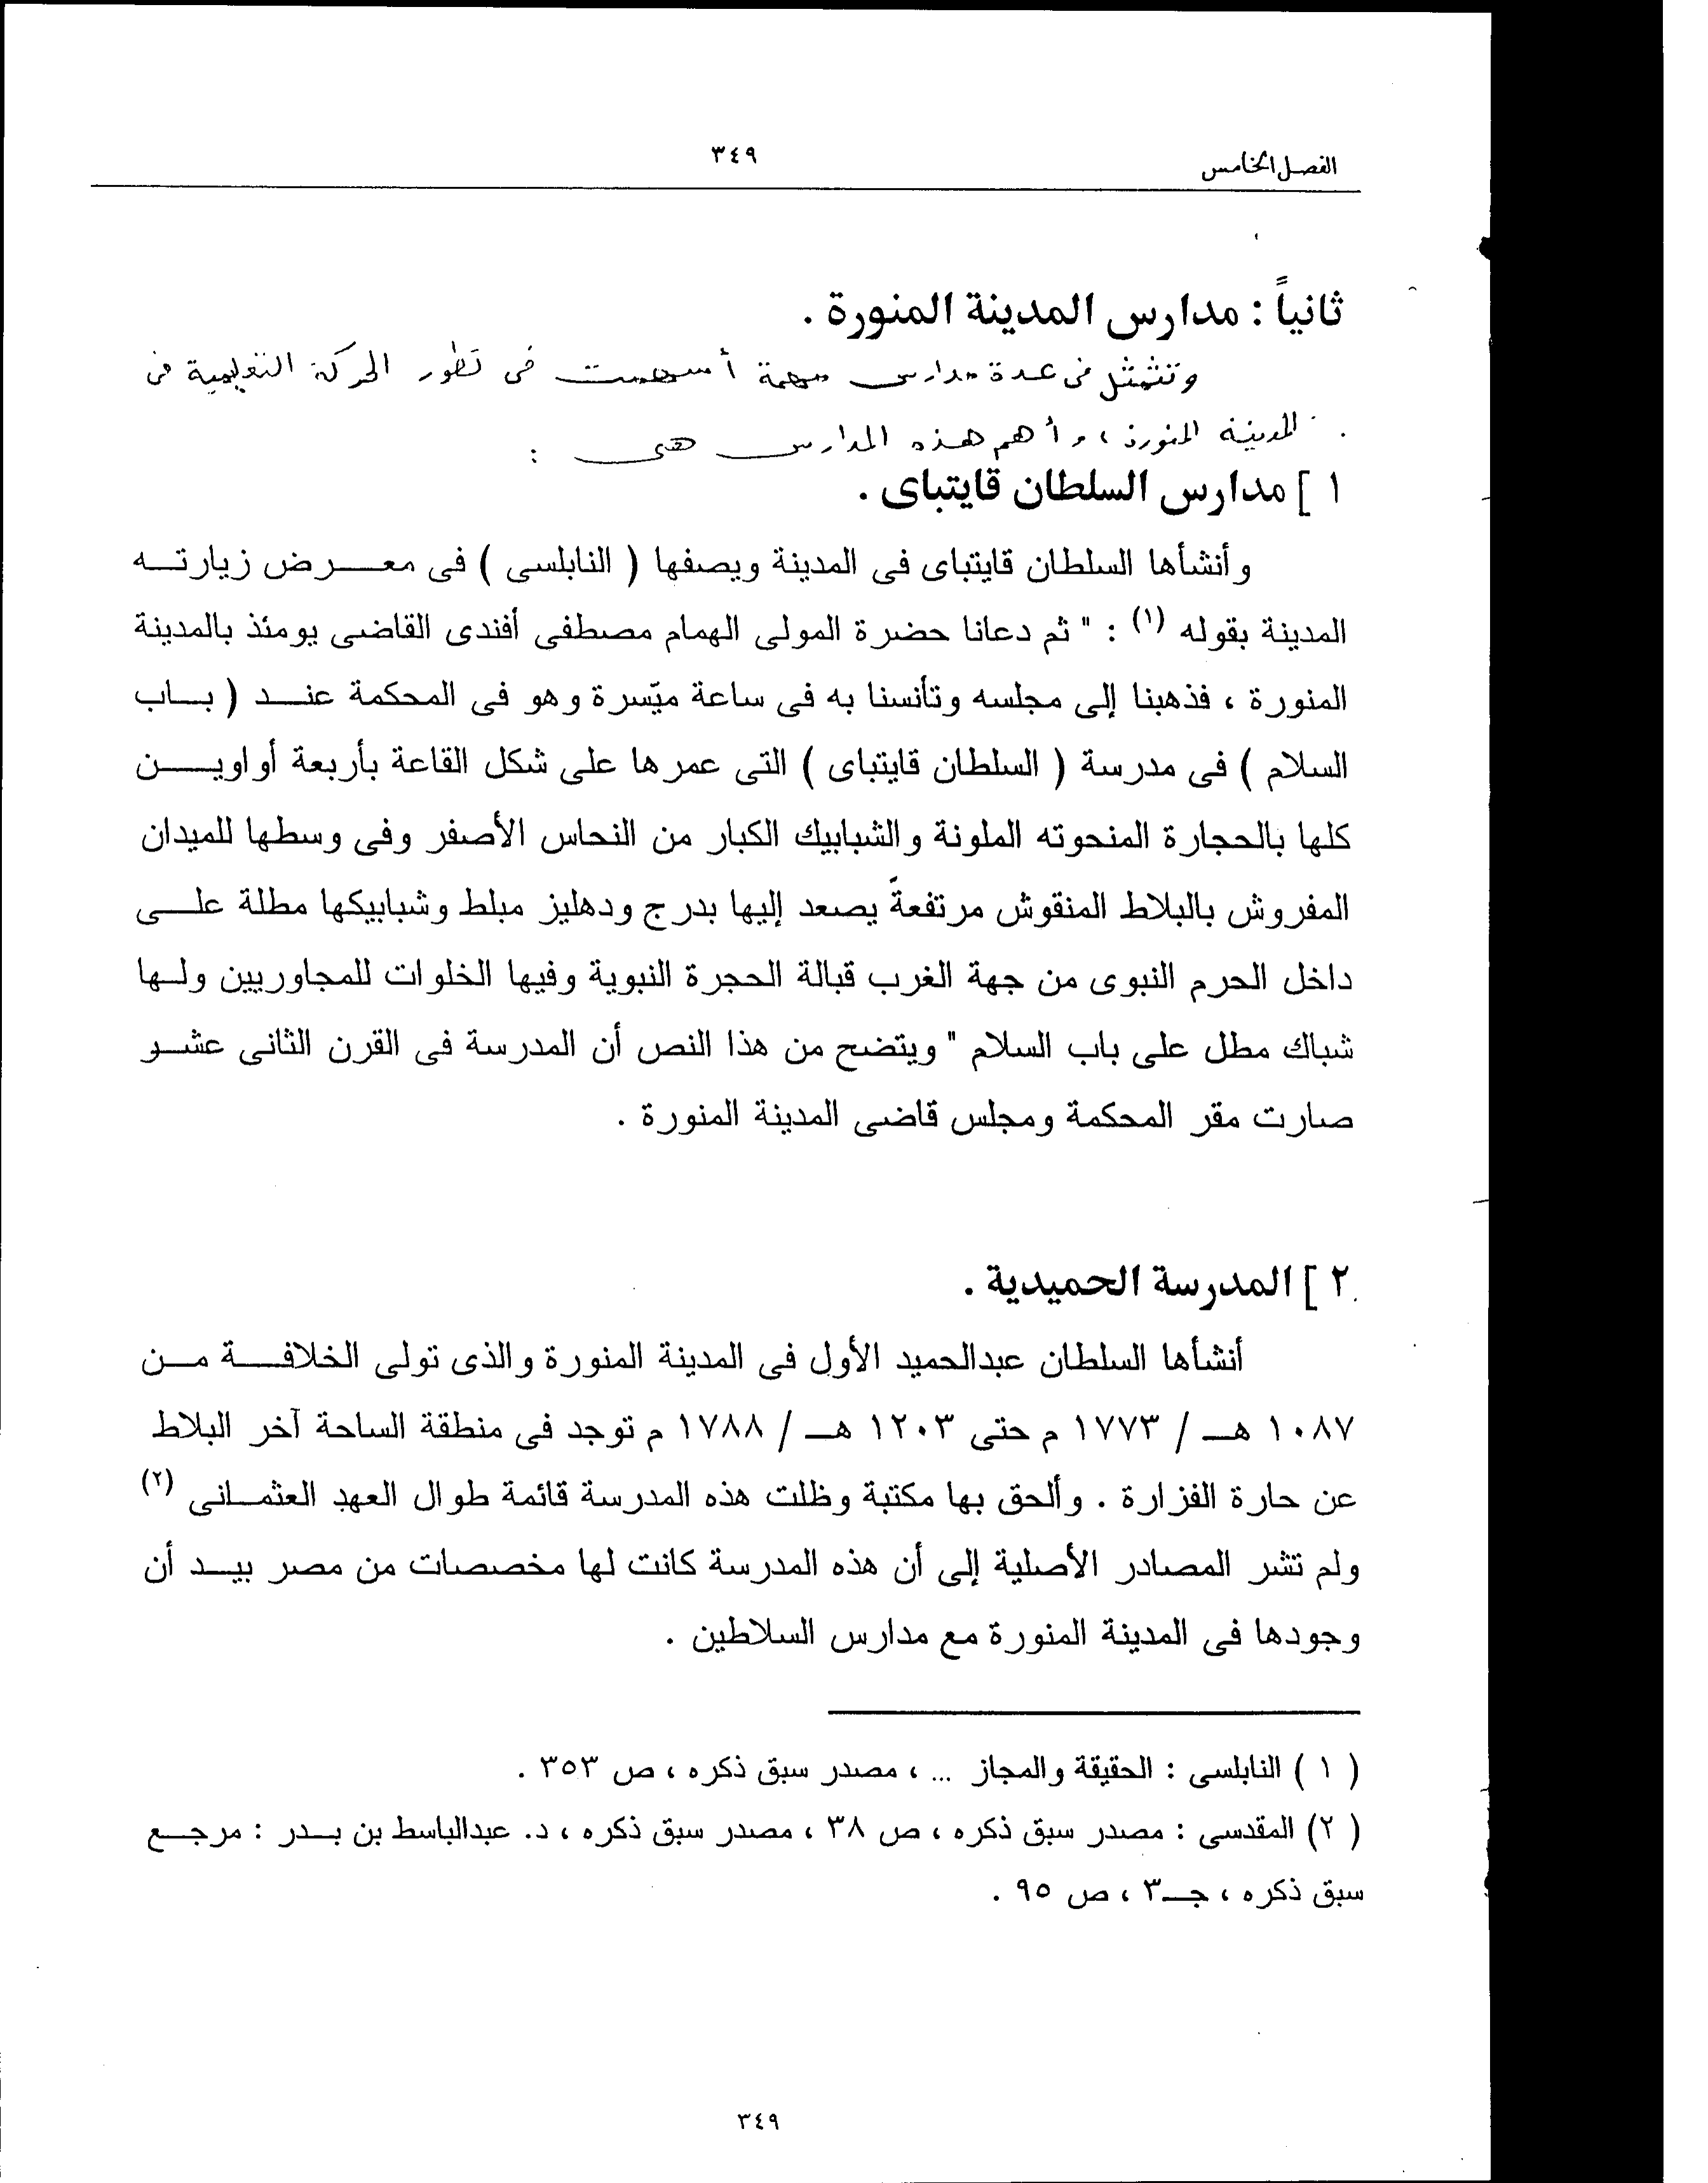 الفصل الخامس
٣٤٩
ثانياً : مدارس المدينة المنورة .
وتتمثل فى عدة مدارس مهمة أسهمت فى تطور الحركة التعليمية فى
المدينة المنورة ، وأهم هذه المدارس هى :
١ ] مدارس السلطان قايتباى .
وأنشأها السلطان قايتباى فى المدينة ويصفها ( النابلسى ) فى معرض زيارته
المدينة بقوله (١) : " ثم دعانا حضرة المولى الهمام مصطفى أفندى القاضى يومئذ بالمدينة
المنورة ، فذهبنا إلى مجلسه وتأنسنا به فى ساعة ميّسرة وهو فى المحكمة عند ( باب
السلام ) فى مدرسة ( السلطان قايتباى ) التى عمرها على شكل القاعة بأربعة أواوين
كلها بالحجارة المنحوته الملونة والشبابيك الكبار من النحاس الأصفر وفى وسطها للميدان
المفروش بالبلاط المنقوش مرتفعةً يصعد إليها بدرج ودهليز مبلط وشبابيكها مطلة على
داخل الحرم النبوى من جهة الغرب قبالة الحجرة النبوية وفيها الخلوات للمجاوريين ولها
شباك مطل على باب السلام " ويتضح من هذا النص أن المدرسة فى القرن الثانى عشو
صارت مقر المحكمة ومجلس قاضى المدينة المنورة .
٢ ] المدرسة الحميدية .
أنشأها السلطان عبدالحميد الأول فى المدينة المنورة والذى تولى الخلافة من
١٠٨٧ هـ / ١٧٧٣ م حتى ١٢٠٣ هـ / ١٧٨٨ م توجد فى منطقة الساحة آخر البلاط
عن حارة الفزارة . وألحق بها مكتبة وظلت هذه المدرسة قائمة طوال العهد العثمانى (٢)
ولم تشر المصادر الأصلية إلى أن هذه المدرسة كانت لها مخصصات من مصر بيد أن
وجودها فى المدينة المنورة مع مدارس السلاطين .
( ١ ) النابلسى : الحقيقة والمجاز ... ، مصدر سبق ذكره ، ص ٣٥٣ .
( ٢) المقدسى : مصدر سبق ذكره ، ص ٣٨ ، مصدر سبق ذكره ، د. عبدالباسط بن بدر : مرجع
سبق ذكره ، جـ٣ ، ص ٩٥ .
٣٤٩